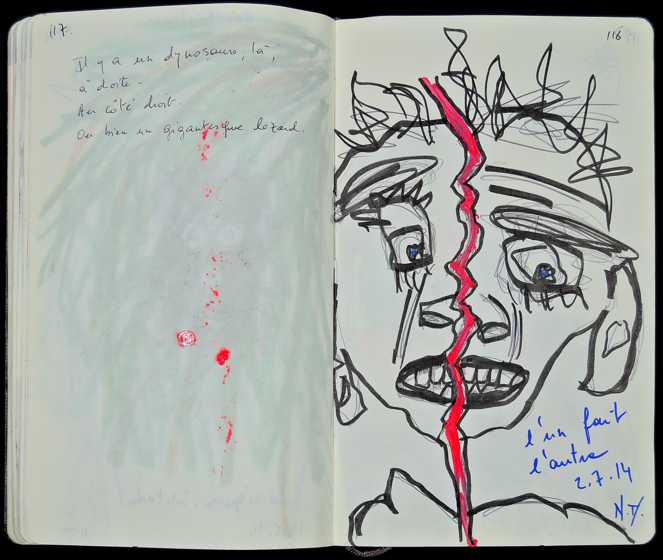 117.
Il y a un dynosaure, là,
à doite.
Au côté droit.
Ou bien un gigantesque lézard.
116
l'un fait
l'autre
2.7.14
N.D.